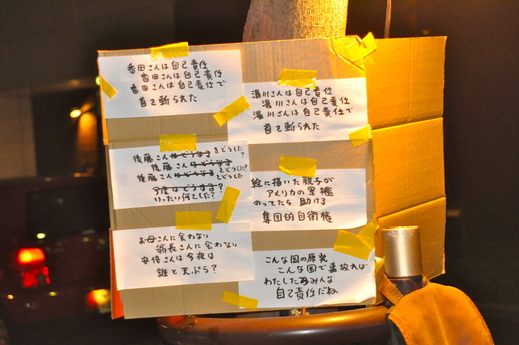 香田さんは自己責任
香田さんは自己責任
香田さんは自己責任で
首を斬られた
湯川さんは自己責任
湯川さんは自己責任
湯川さんは自己責任で
首を斬られた
後藤さんをどうした?
後藤さんをどうした?
後藤さんをどうした
いったい何をした?
絵に描いた親子が
アメリカの軍艦
のってたら助ける
集団的自衛権
お母さんに会わない
病長さんに会わない
安倍さんは今夜は
誰と天ぷら?
こんな国の原発
こんな国で事故れば
わたしたちみんな
自己責任だね